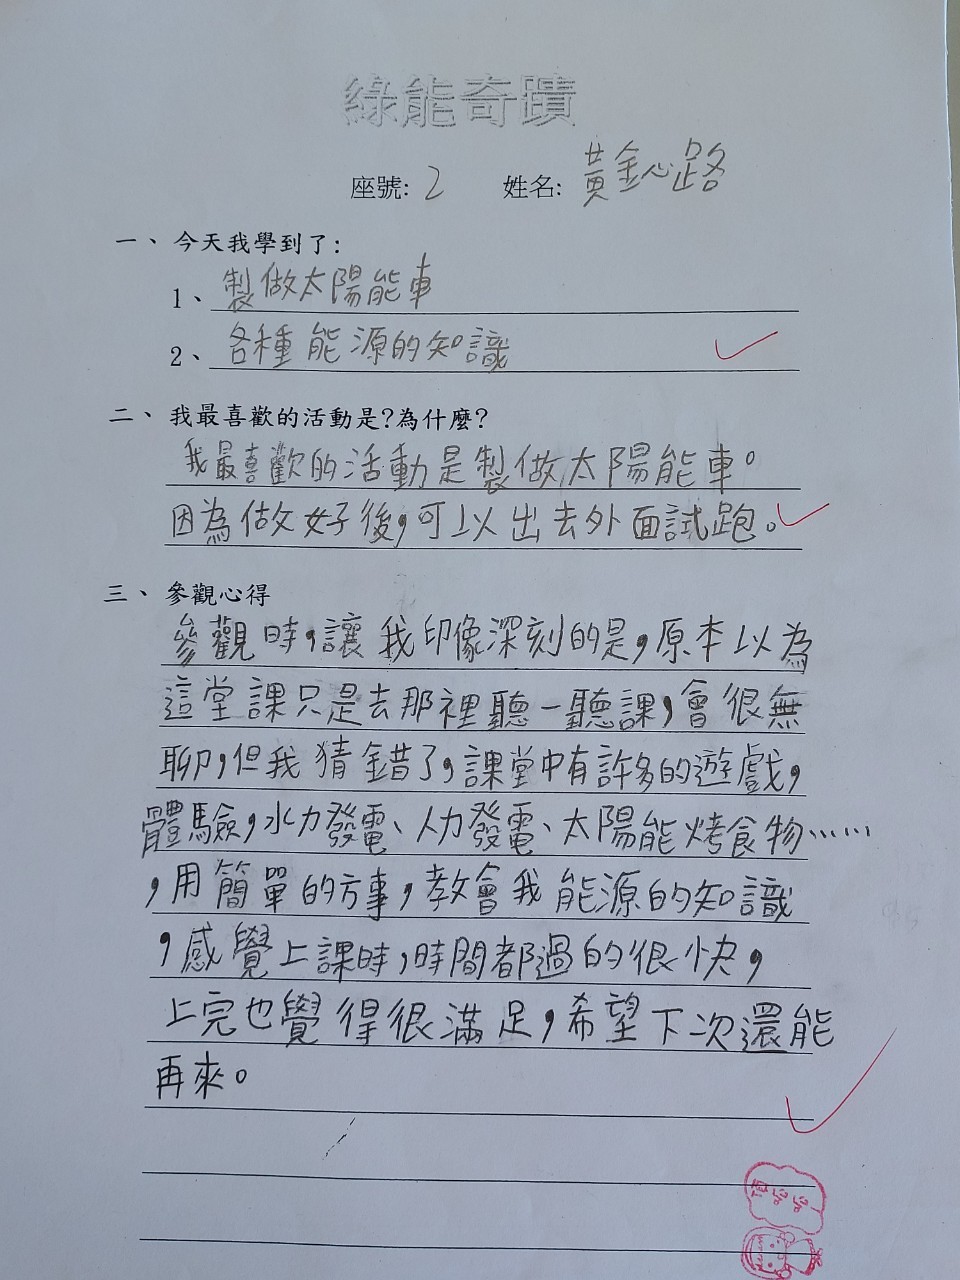 綠能奇蹟
座號: 2 姓名: 黃金心路
一、今天我學到了:
1、製做太陽能車
2、各種能源的知識
二、我最喜歡的活動是?為什麼?
我最喜歡的活動是製做太陽能車。
因為做好後,可以出去外面試跑。
三、參觀心得
參觀時,讓我印像深刻的是,原本以為
這堂課只是去那裡聽一聽課,會很無
聊,但我猜錯了,課堂中有許多的遊戲,
體驗,水力發電、人力發電、太陽能烤食物……
,用簡單的方事,教會我能源的知識
,感覺上課時,時間都過的很快,
上完也覺得很滿足,希望下次還能
再來。